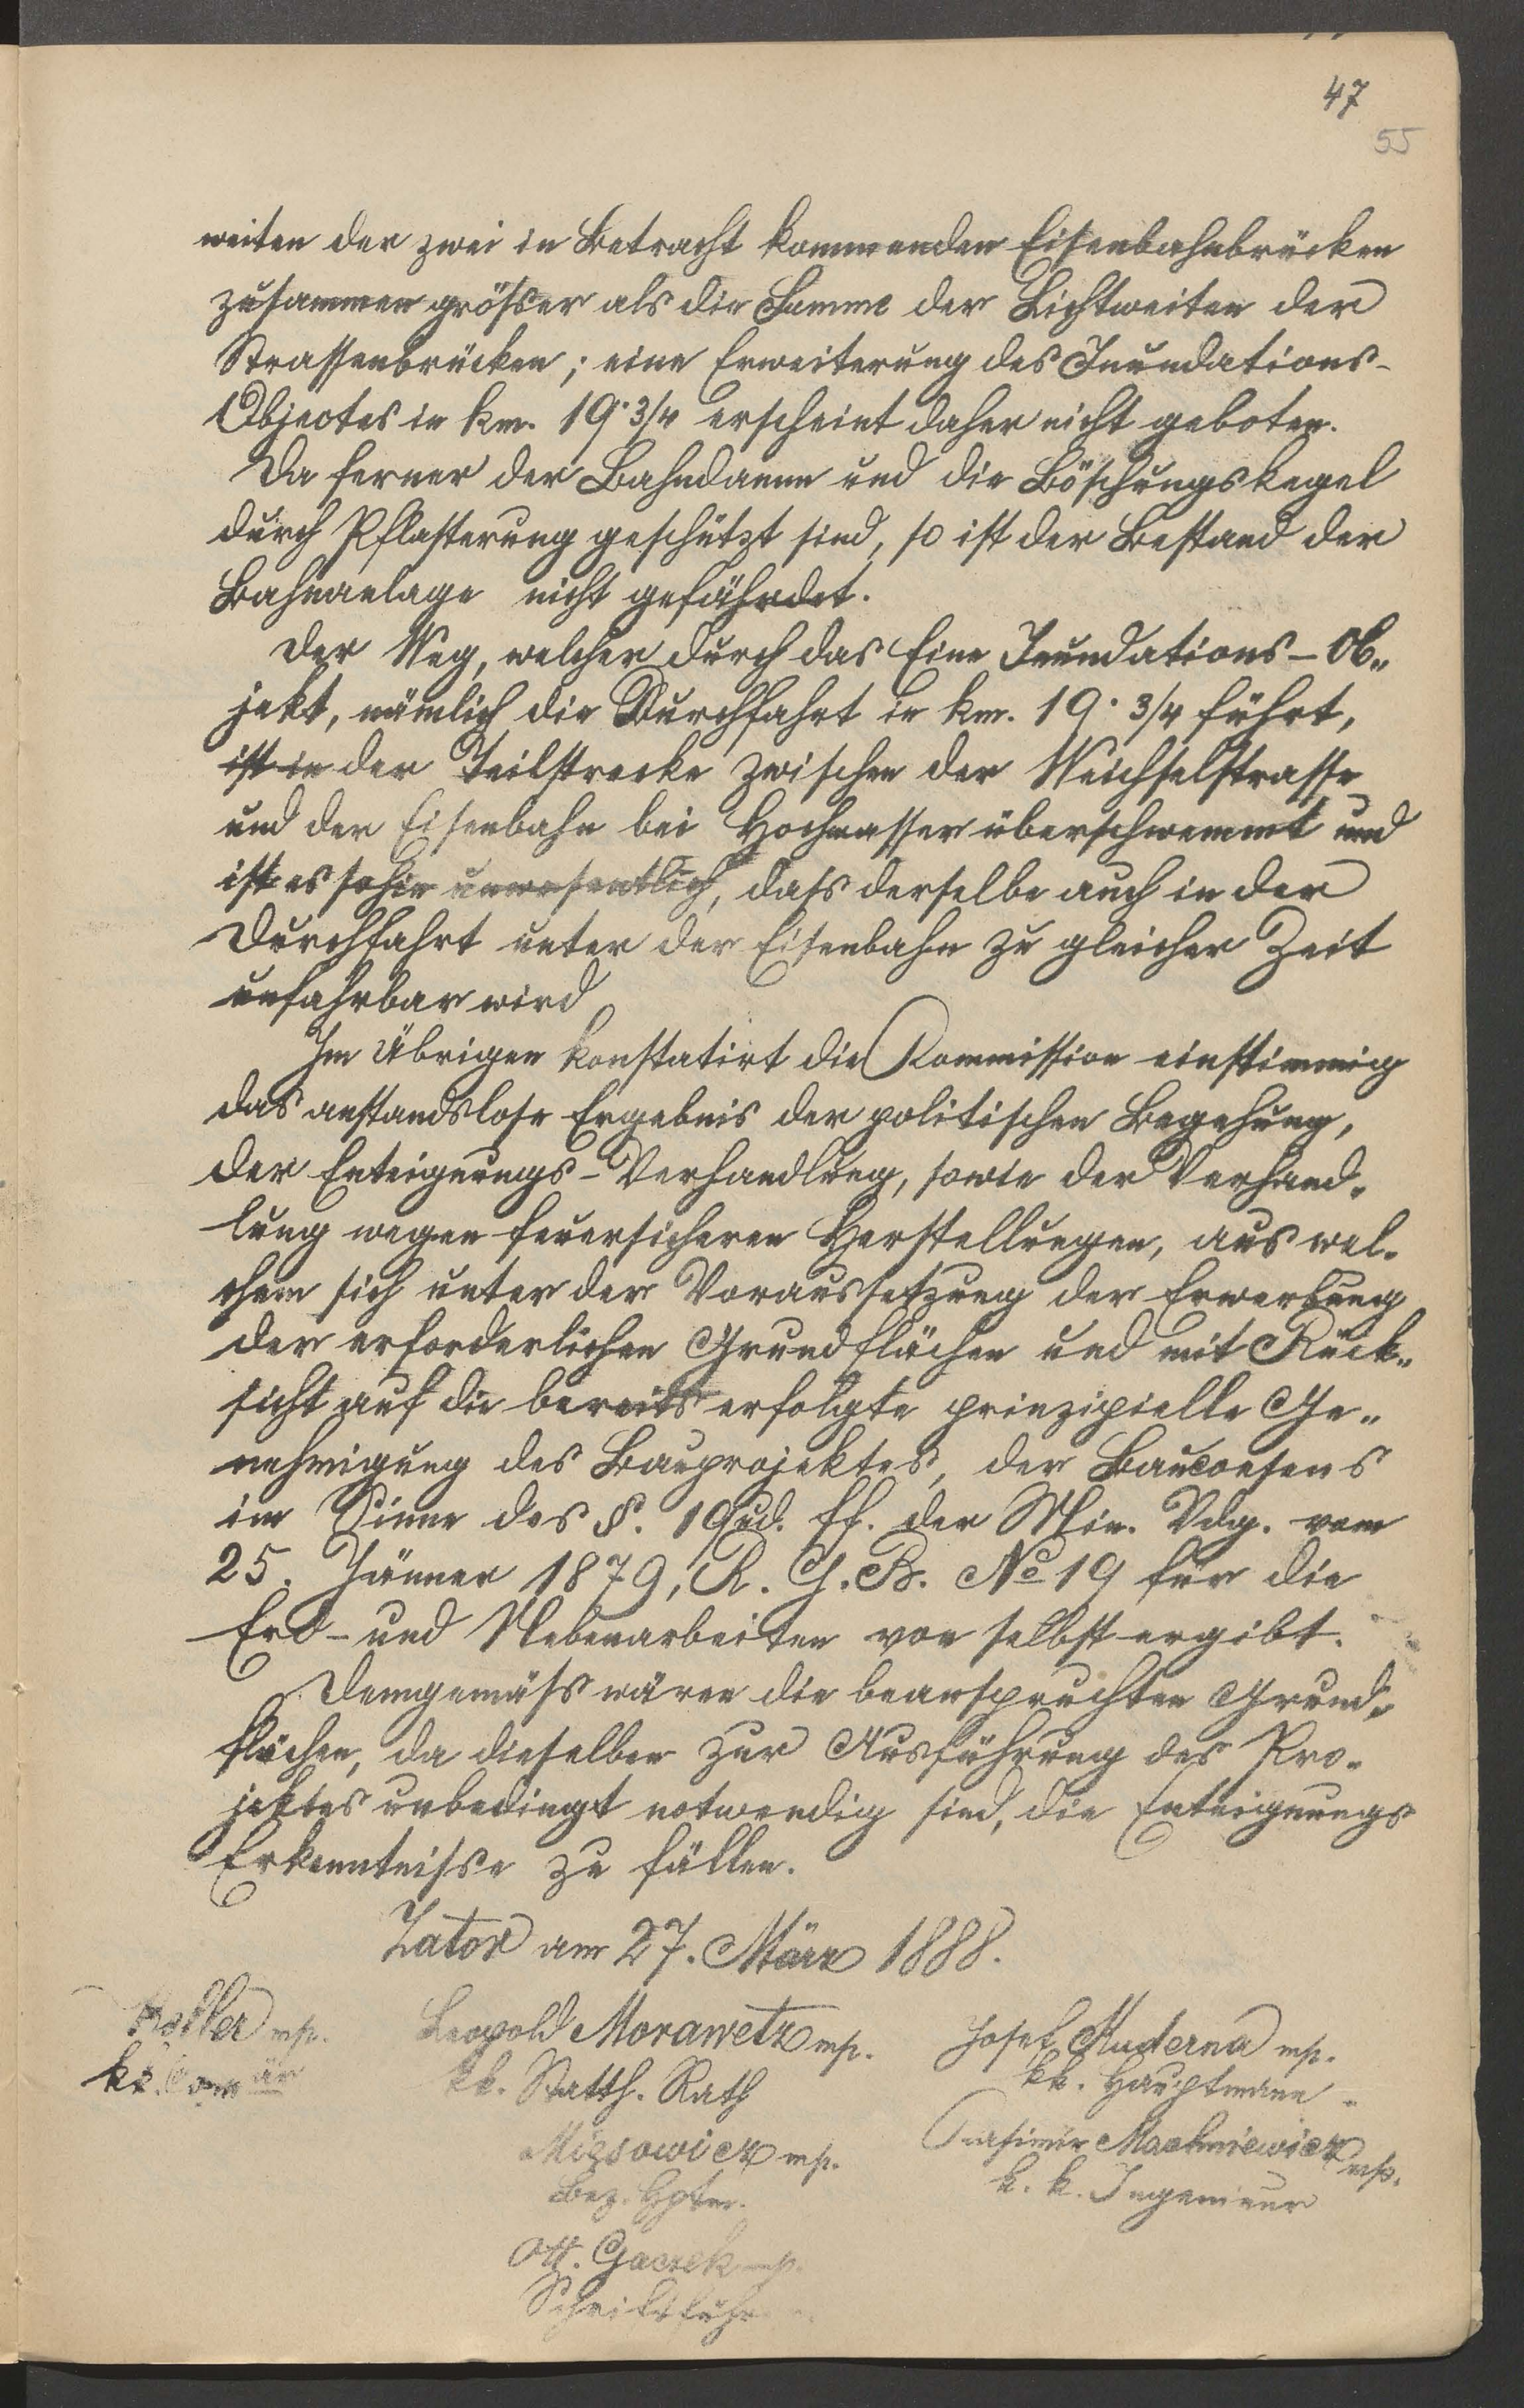 47
55
weiten der zwei in Betracht kommenden Eisenbahnbrücken
zusammen größer als die Summe der Lichtweiten der
Strassenbrücken; eine Erweiterung des Inundations-
Objectes in km. 19·3/4 erscheint daher nicht geboten.
Da ferner der Bahndamm und die Böschungskegel
durch Pflasterung geschützt sind, so ist der Bestand der
Bahnanlage nicht gefährdet.
Der Weg, welcher durch das Eine Inundations-Ob„
jekt, nämlich die Durchfahrt in km. 19·3/4 führt,
ist in der Teilstrecke zwischen der Weichselstrasse
und der Eisenbahn bei Hochwasser überschwemmt und
ist es sohin unwesentlich, dass derselbe auch in der
Durchfahrt unter der Eisenbahn zu gleicher Zeit
unfahrbar wird
Im Übrigen konstatirt die Kommission einstimmig
das anstandslose Ergebnis der politischen Begehung,
der Enteignungs-Verhandlung, sowie der Verhand„
lung wegen feuersicheren Herstellungen, aus wel„
chem sich unter der Voraussetzung der Erwerbung
der erforderlichen Grundflächen und mit Rück„
sicht auf die bereits erfolgte prinzipielle Ge„
nehmigung des Bauprojektes, der Bauconsens
im Sinne des §. 19 ud. ff. der Min. Vdg. vom
25. Jänner 1879, R. G. B. No 19 für die
Erd- und Nebenarbeiten von selbst ergibt.
Demgemäss wären die beanspruchten Grund„
flächen, da dieselben zur Ausführung des Pro„
jektes unbedingt notwendig sind, die Enteignungs
Erkenntnisse zu fällen.
Zator am 27. März 1888.
Leopold Morawetz mp.
kk. Statth. Rath
Josef Kuderna mp.
kk. Hauptmann
mp.
kk.
mp.
Bez. Hptm.
Casimir Machniewicz mp.
k. k. Ingenieur
Ott. Gaczek mp.